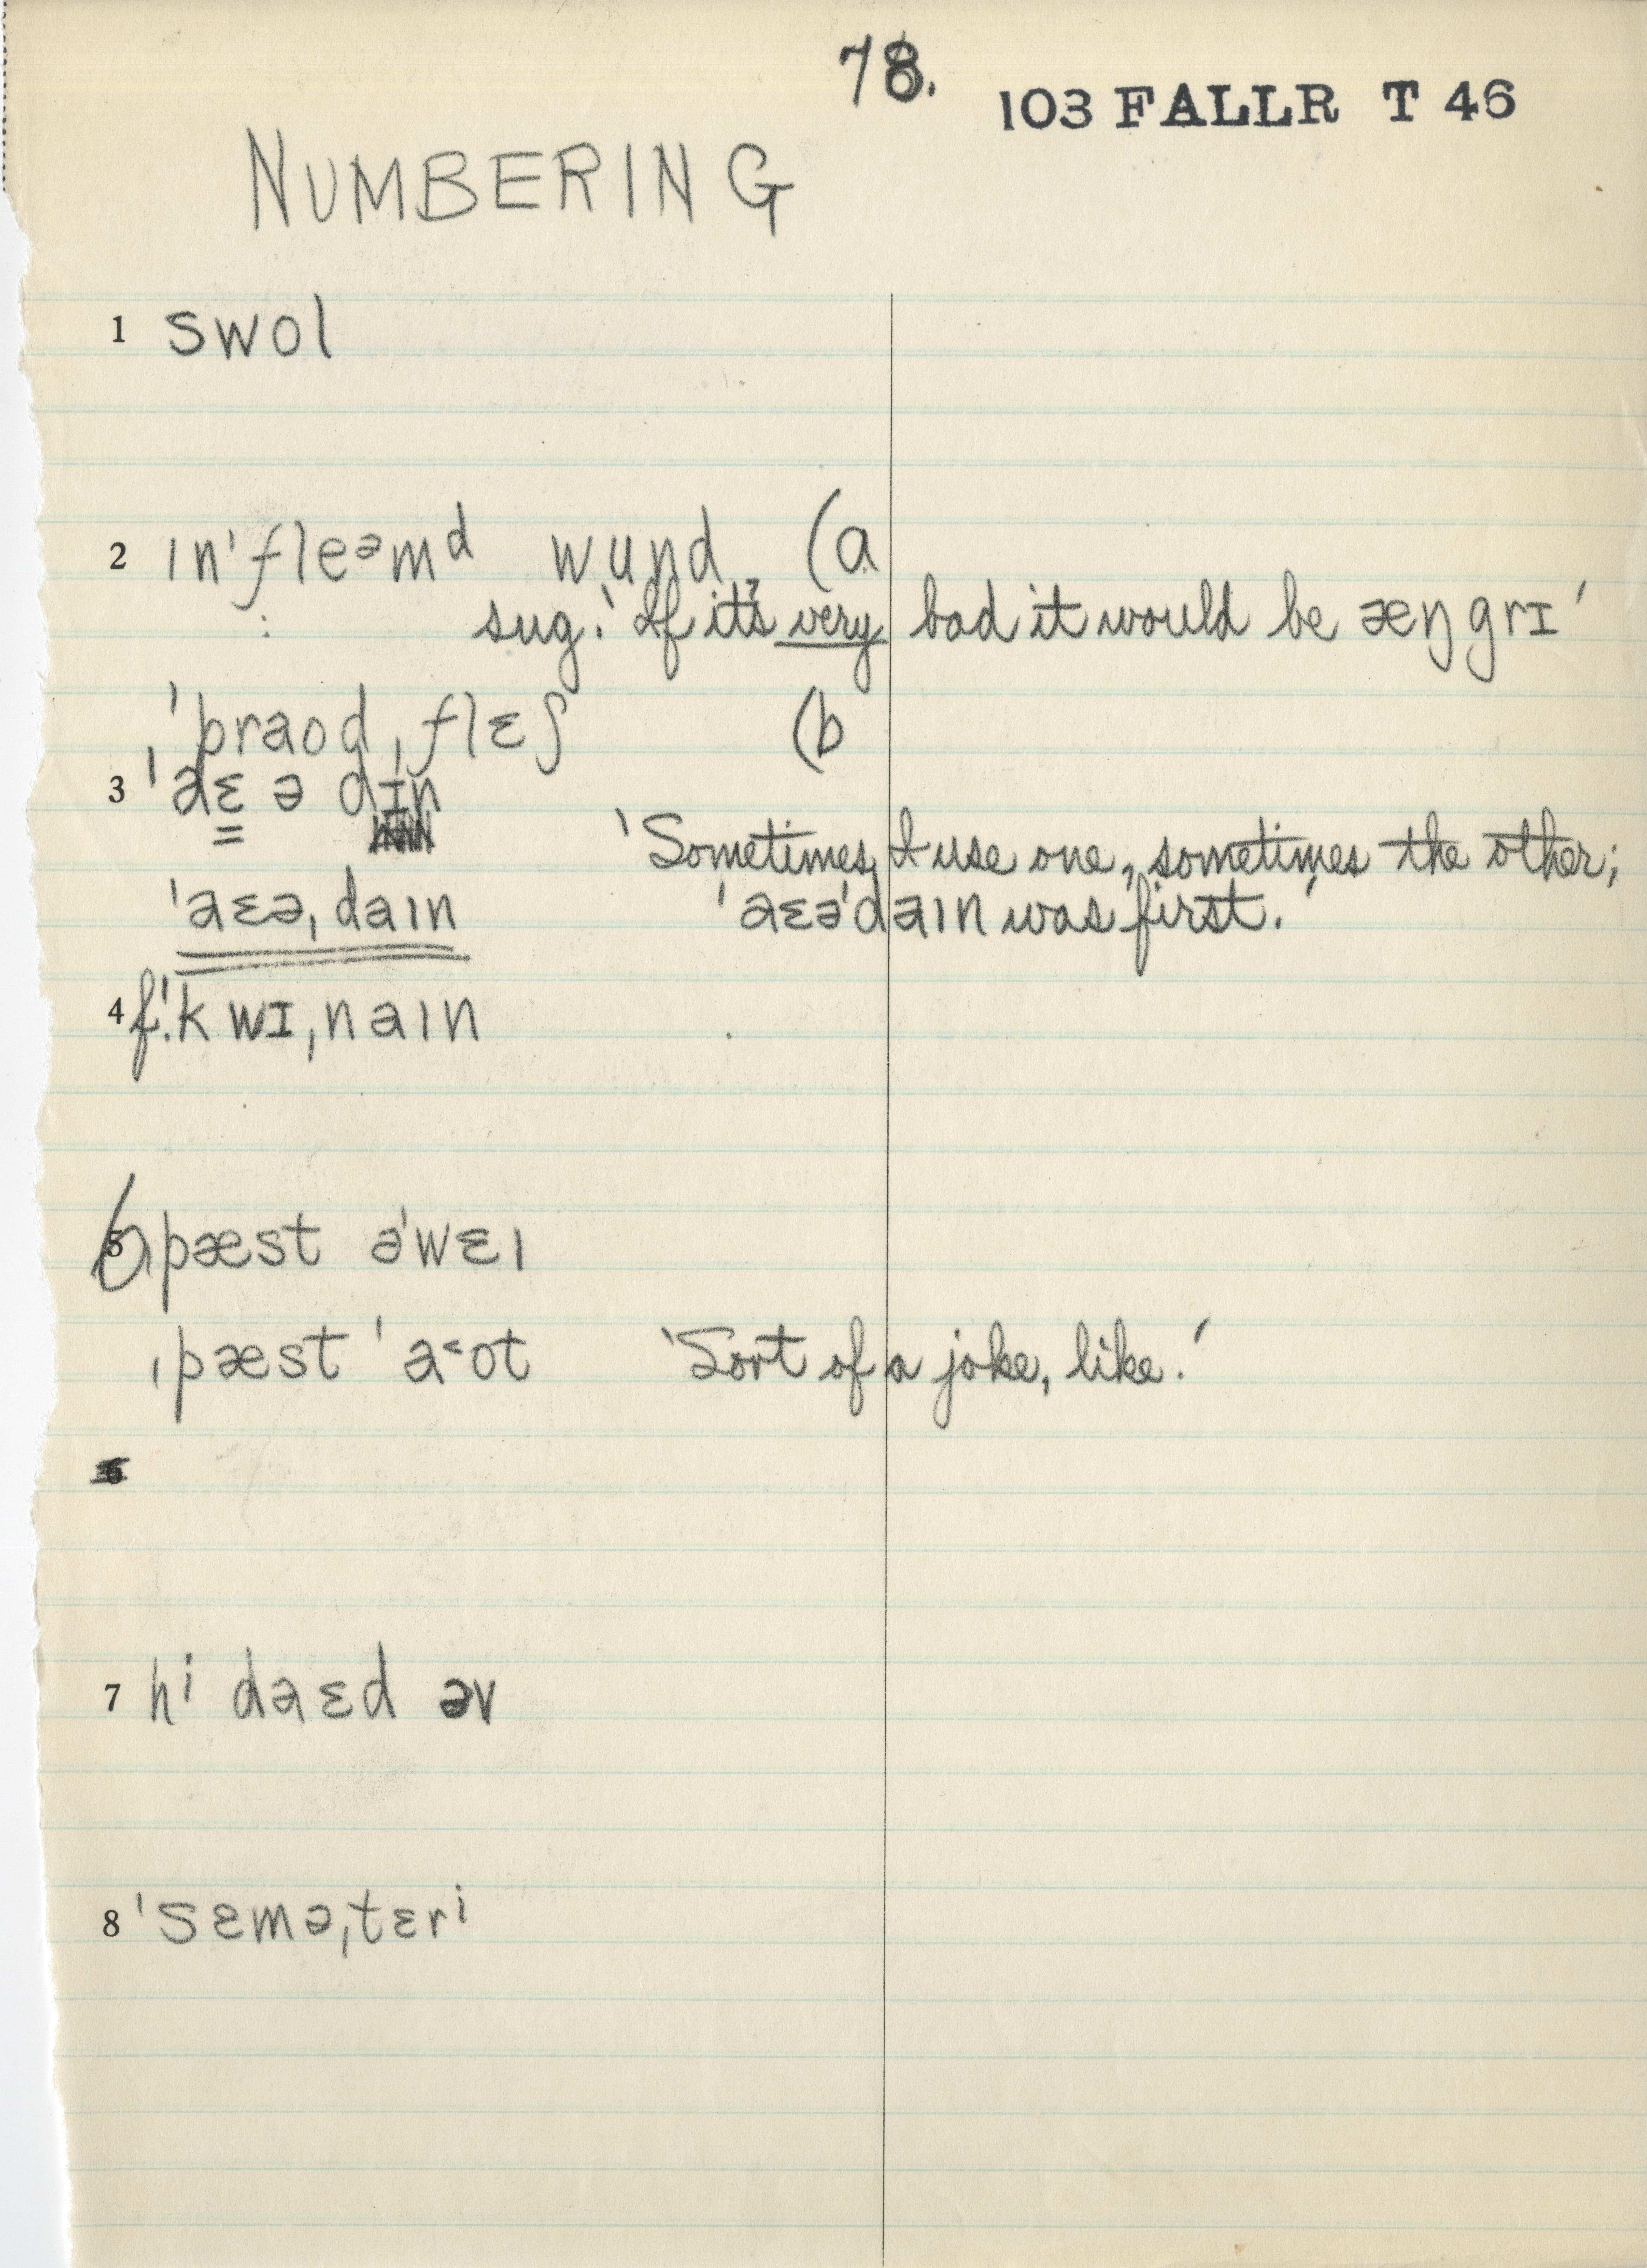 78.
103 FALLR T 46
NUMBERING
1 swol
2 ɪn'fleᵊmᵈ wund (a
sug. 'If it's very bad it would be æŋgrɪ'
'praod ˌflɛʃ (b
3 'aɛ ə dɪn
'Sometimes I use one, sometimes the other;
'aɛəˌdaɪn 'aɛə'daɪn was first.'
4 f! kwɪˌnaɪn
6 ˌpæst ə'wɛɪ
ˌpæst 'a˂ot 'Sort of a joke, like.'
7 hⁱ daɛd əv
8 'sɛməˌtɛrⁱ